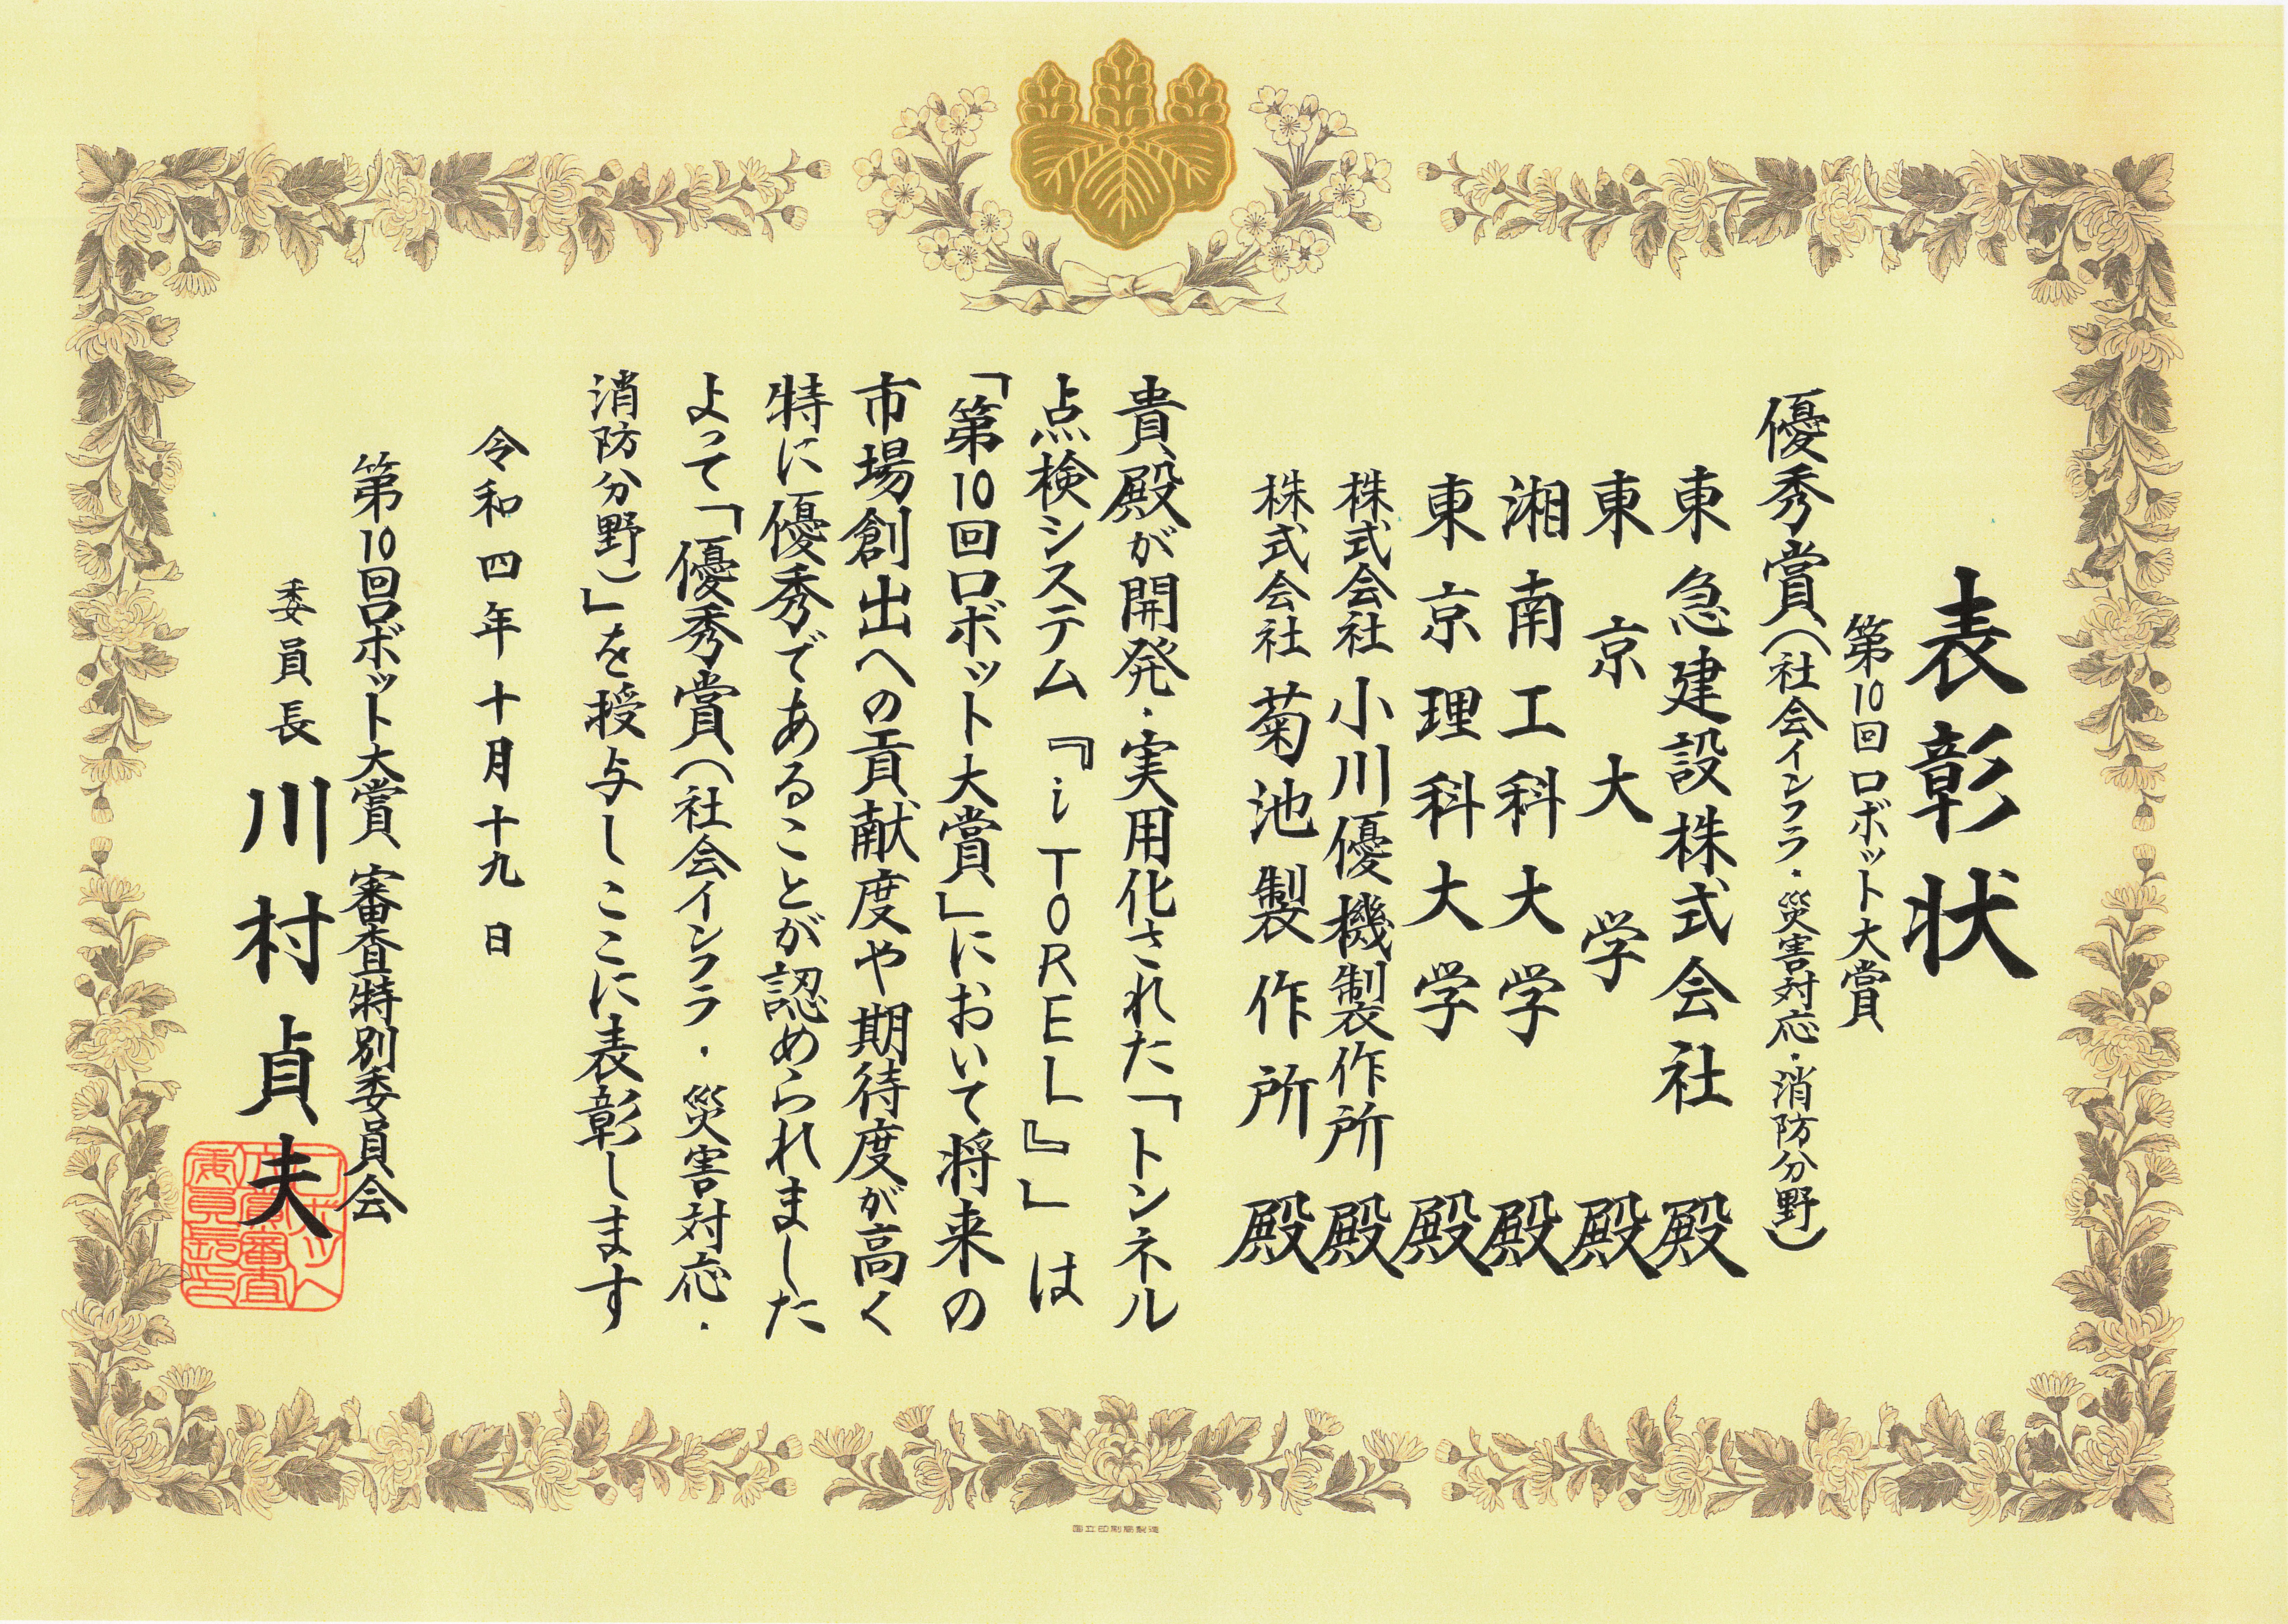 表彰状
第10回ロボット大賞
優秀賞(社会インフラ・災害対応・消防分野)
東急建設株式会社 殿
東京大学 殿
湘南工科大学 殿
東京理科大学 殿
株式会社小川優機製作所 殿
株式会社菊池製作所 殿
貴殿が開発・実用化された「トンネル
点検システム『iTOREL』」は
「第10回ロボット大賞」において将来の
市場創出への貢献度や期待度が高く
特に優秀であることが認められました
よって「優秀賞(社会インフラ・災害対応・
消防分野)」を授与しここに表彰します
令和四年十月十九日
第10回ロボット大賞 審査特別委員会
委員長 川村貞夫
国立印刷局製造